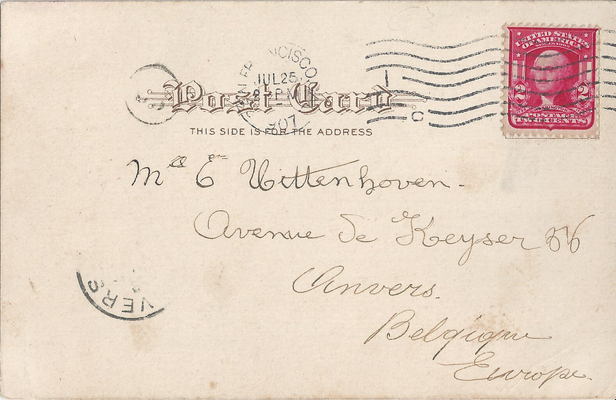 SAN FRANCISCO
JUL 25
8 - PM
'07
UNITED STATES
OF AMERICA
2 2
POSTAGE
TWO CENTS
Post Card
THIS SIDE IS FOR THE ADDRESS
Mme E Uittenhoven -
Avenue De Keyser 56
Anvers.
Belgique
Europe.
VERS